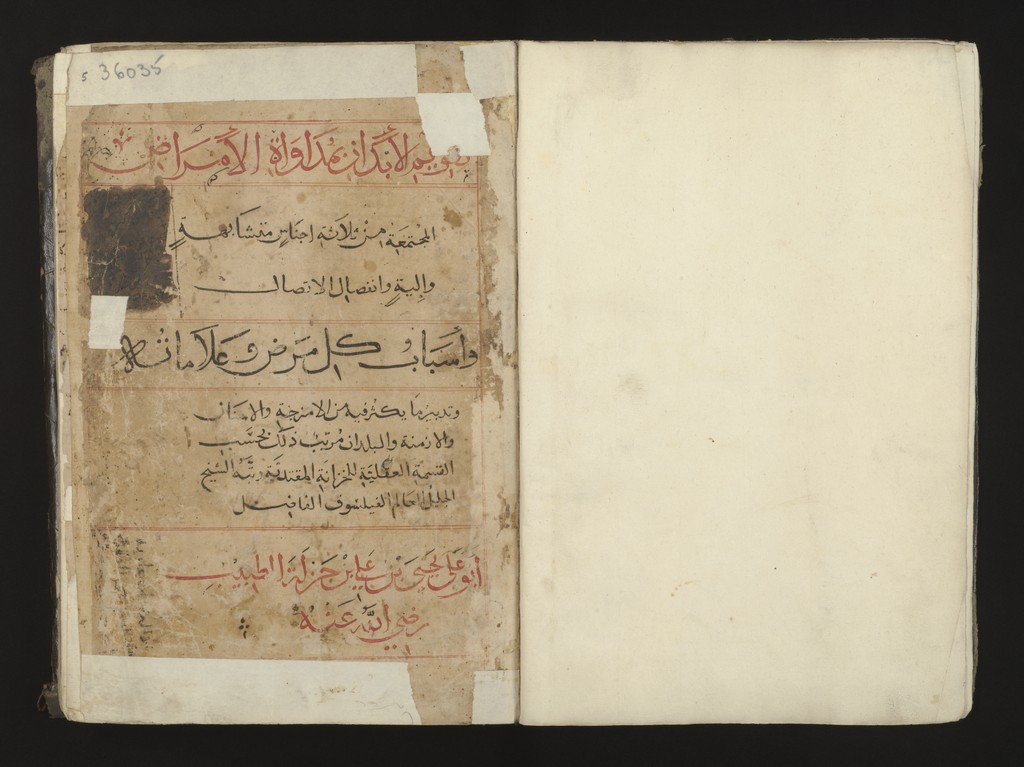 5 36035
تقويم الأبدان بمداواة الأمراض
المجتمعة من ثلاثة اجناس متشابهةٍ
وإليةٍ وانفصال الاتصال
وأسباب كل مرض وعلاماته
وتدبير ما يكثر فيه من الامزجة والاسنان
والازمنة والبلدان مُرتب ذلك بحسَب
القسمة العقليّة للخزانة المقتديّة رتبَه الشيخ
الجليل العالم الفيلسوف الفاضل
أبو علي يحيى بن علي بن جزلة الطبيب
رضي الله عنه